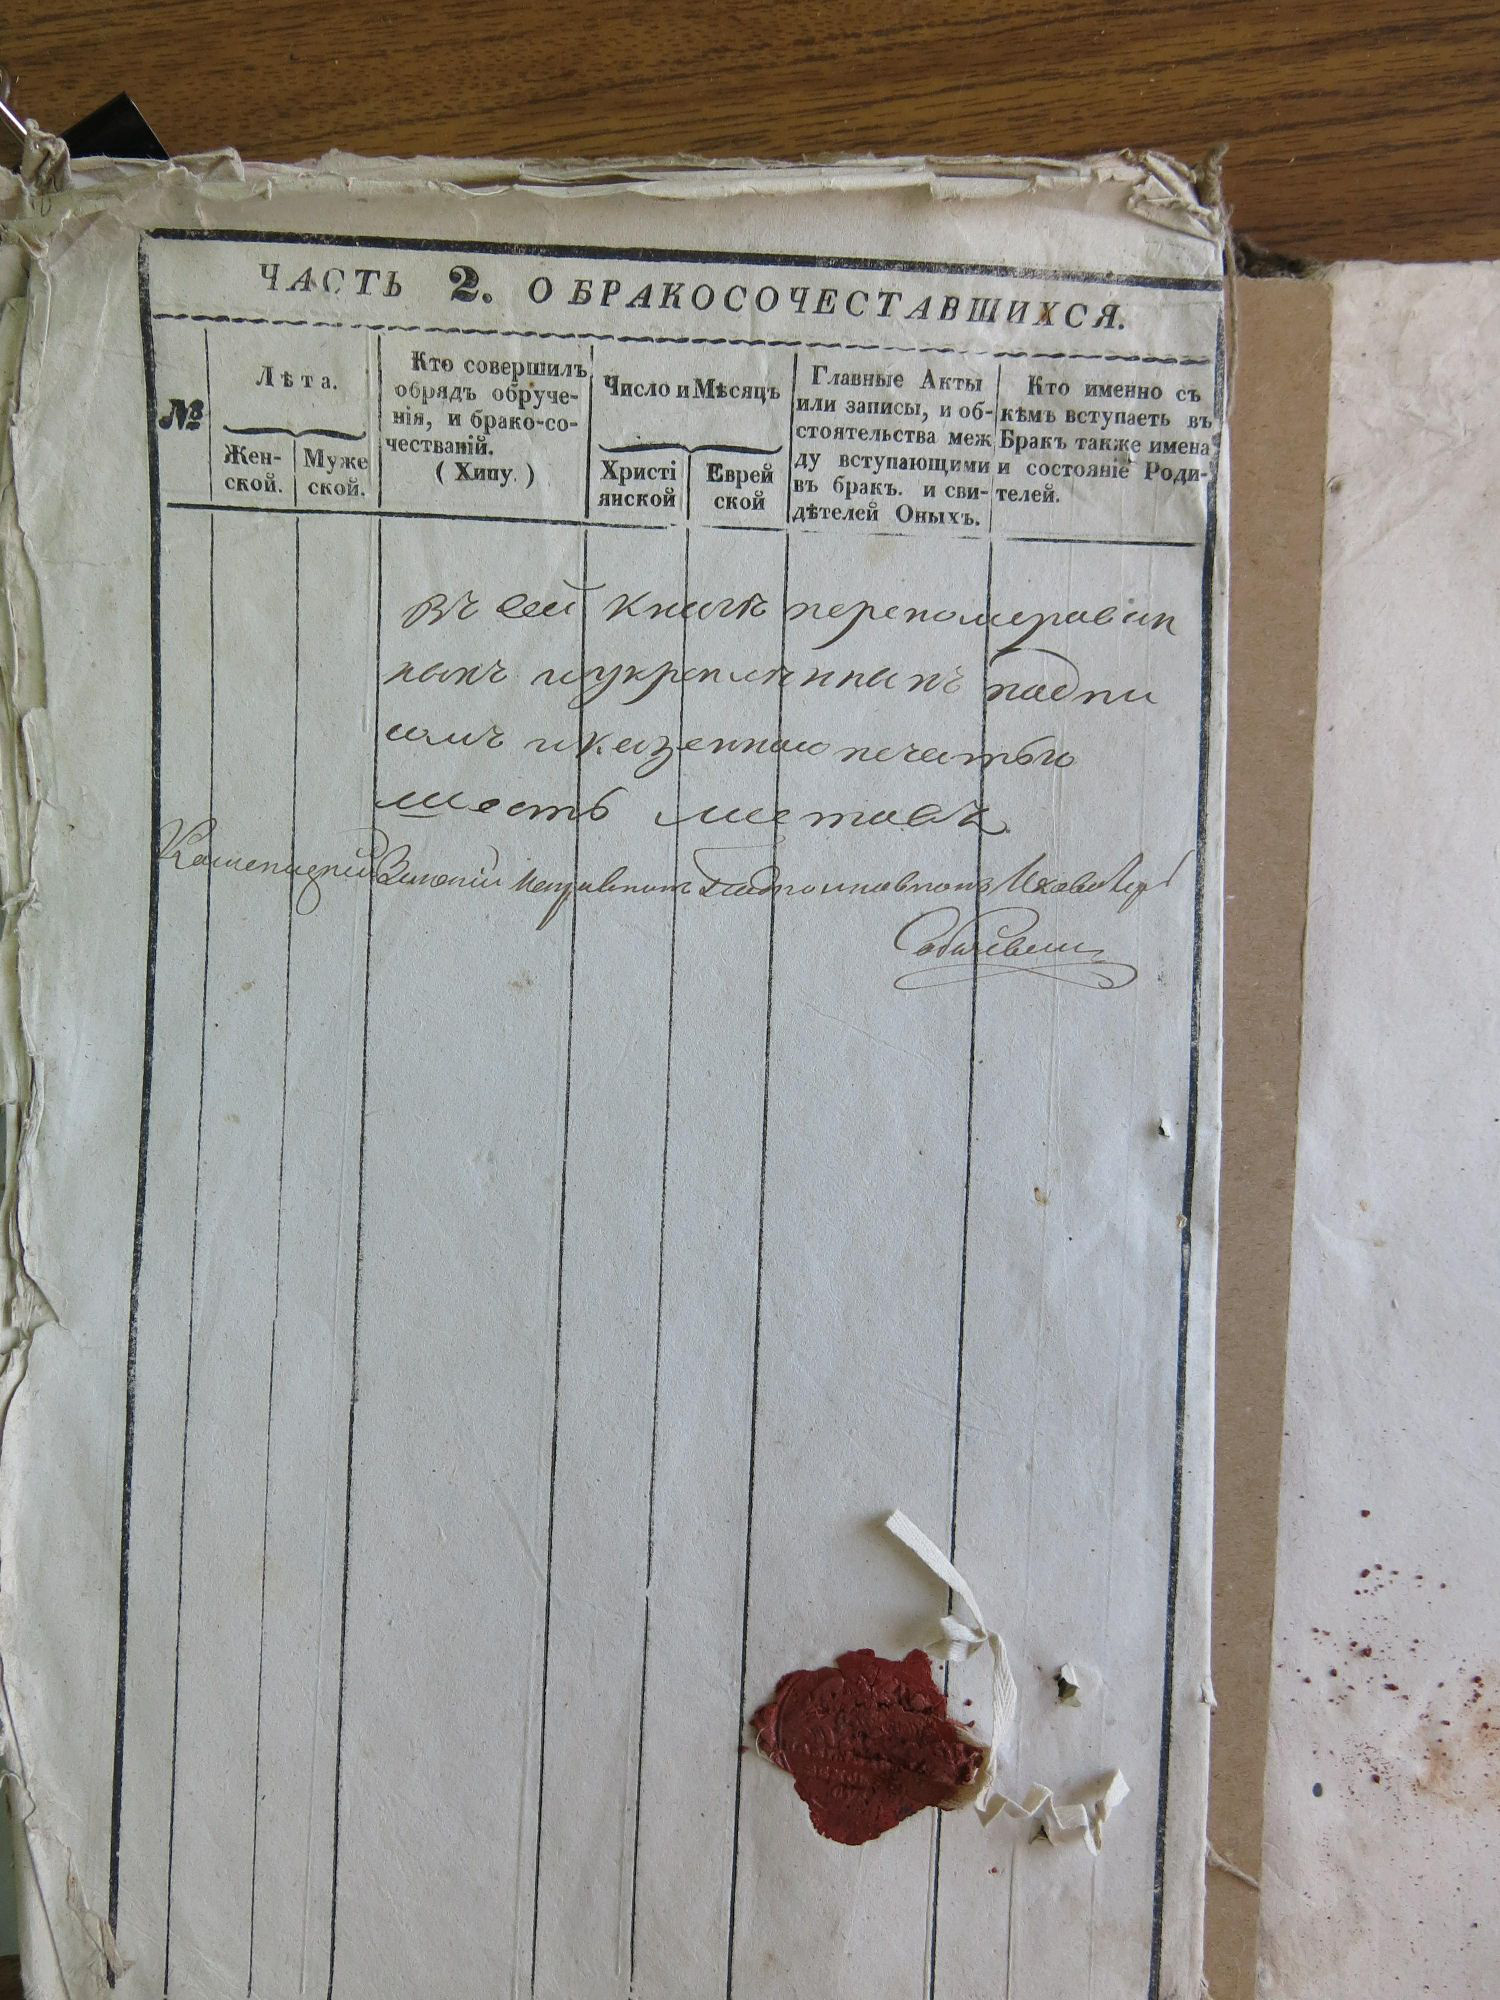 ЧАСТЬ 2. О БРАКОСОЧЕСТАВШИХСЯ.
№
Лѣта.
Жен-
ской.
Муже
ской.
Кто совершилъ
обрядъ обруче-
нія, и брако-со-
честваній.
( Хипу. )
Число и Мѣсяцъ
Христі
янской
Еврей
ской
Главные Акты
или записы, и об-
стоятельства меж
ду вступающими
въ бракъ. и сви-
дѣтелей Оныхъ.
Кто именно съ
кѣмъ вступаетъ въ
Бракъ также имена
и состояніе Роди-
телей.
Въ сей книгѣ перенумерован
ныхъ и укрепленныхъ подпи
сомъ и казенною печатью
шесть листовъ
Земскій Исправникъ Подполковникъ